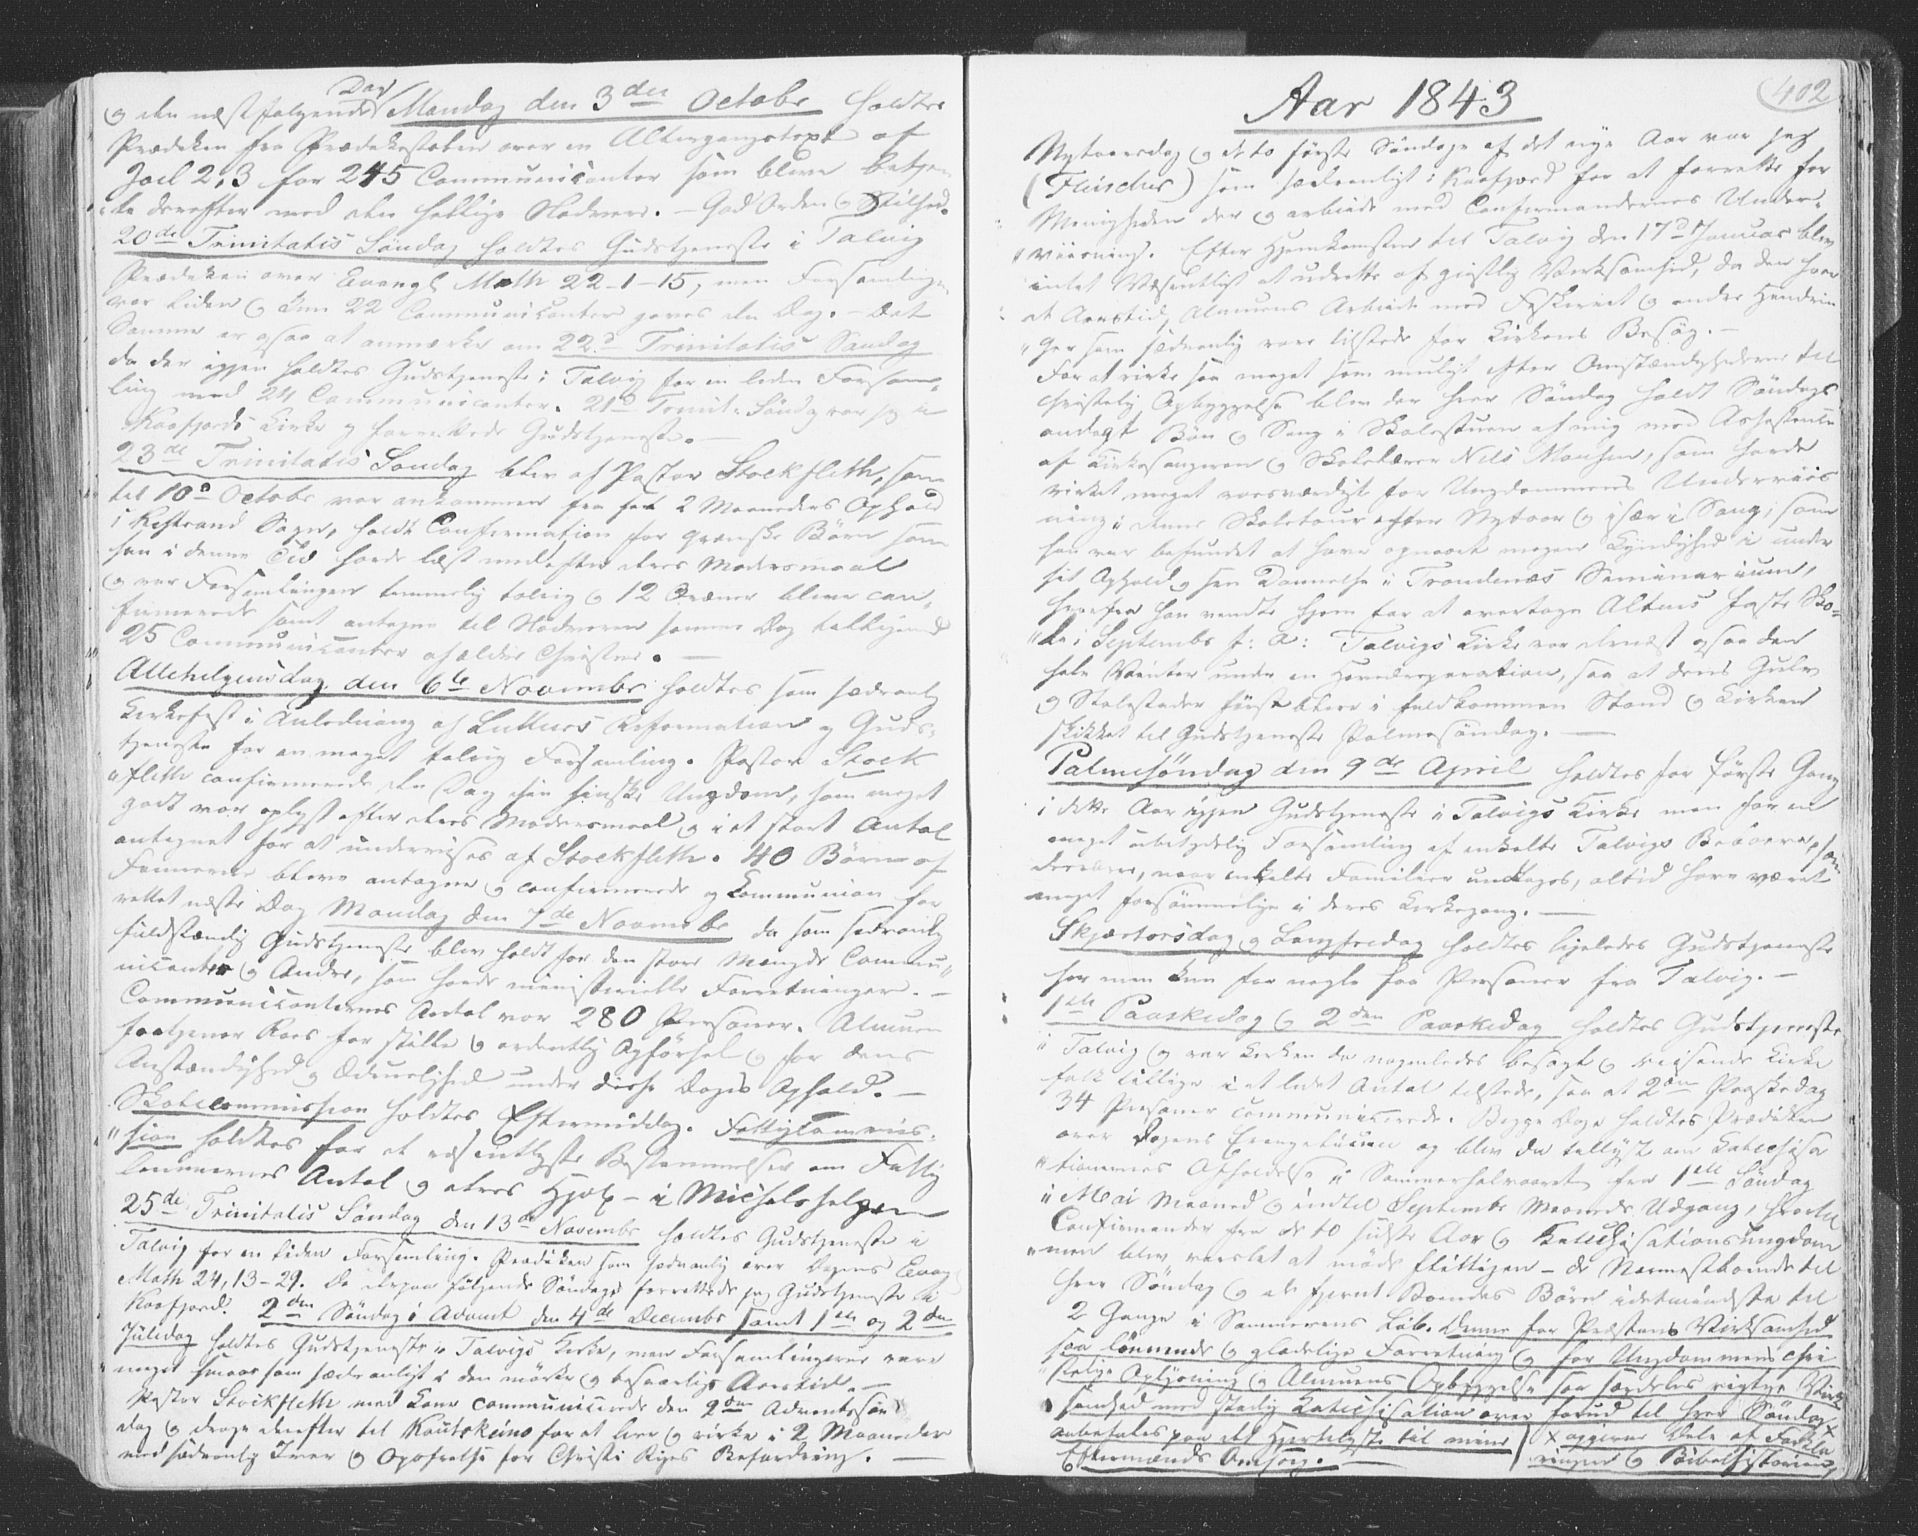 Dag
og den næst følgende Mandag den 3die Octobr holdtes
Prædiken fra Prædikestolen over en Altergangstext af
Joel 2,3 for 245 Communicanter som bleve betjen
te derefter med den hellige Nadvere. – God Orden og Stilhed.
20de Trinitatis Søndag holdtes Gudstjeneste i Talvig
Prædiken over Evangl Math 22-1-15, men Forsamlingen
var liden og kun 22 Communicanter gaves den Dag. – Det
Samme er ogsaa at anmærke om 22d Trinitatis Søndag
da der igjen holdtes Gudstjeneste i Talvig for en liden Forsam„
ling med 24 Communicanter. 21de Trinit: Søndag var jeg i
Kaafjords Kirke og forrettede Gudstjeneste. –
23de Trinitatis Søndag blev af Pastor Stockfleth, som
den 10de Octobr var ankommen fra sit 2 Maaneders Ophold
i Kistrand Sogn, holdt Confirmation for qvænske Børn som
han i denne Tid havde læst med efter deres Modersmaal
og var Forsamlingen temmelig talrig og 12 Qvæner bleve con„
firmerede samt antagne til Nadveren samme Dag tilligemed
25 Communicanter af ældre Christne. –
Allehelgensdag den 6te Novembr holdtes som sædvanlig
Kirkefest i Anledning af Luthers Reformation og Guds„
tjeneste for en meget talrig Forsamling. Pastor Stock
„fleth confirmerede den Dag den finske Ungdom, som meget
godt var oplyst efter deres Modersmaal og i et stort Antal
antegnet for at undervises af Stockfleth. 40 Børn af
Finnerne bleve antagne og confirmerede og Communion for
rettet næste Dag Mandag den 7de Novembr da som sædvanlig
fuldstændig Gudstjeneste blev holdt for den store Mængde Commu„
nicanter og Andre, som havde ministerielle Forretninger. –
Communicanternes Antal var 280 Personer. Almuen
fortjener Roes for stille og ordentlig Opførsel og for deres
Anstændighed og Ædruelighed under disse Dages Ophold. –
Skolecommission holdtes Eftermiddag. Fattigcommis„
„sion holdtes for at væsentligste Bestemmelser om Fattig
lemmernes Antal og deres Hjælp – i Michelshelgen
25de Trinitatis Søndag den 13de Novembr holdtes Gudstjeneste i
Talvig for en liden Forsamling. Prædiken som sædvanlig over Dagens Evang
Math 24, 13-29. De derpaa følgende Søndage forrettede jeg Gudstjeneste i
Kaafjord. 2den Søndag i Advent den 4de Decembr samt 1ste og 2den
Juledag holdtes Gudstjeneste i Talvigs Kirke, men Forsamlingerne vare
meget smaa som sædvanligt i den mörke og besværlige Aarstid. –
Pastor Stockfleth med Kone communicerede den 2den Adventssøn
dag og droge derefter til Kautokeino for at lære og virke i 2 Maaneder
med sædvanlig Iver og Opofrelse for Christi Riges Befordring. –
402
Aar 1843
Nytaarsdag og de to første Søndage af det nye Aar var jeg
(Fleischer) som sædvanligt i Kaafjord for at forrette for
Menigheden der og arbeide med Confirmandernes Under„
„viisning. Efter Hjemkomsten til Talvig den 17d Januar blev
intet Væsentligt at udrette af geistlig Virksomhed, da den
at Aarstid, Almuens Arbeide med Fiskeriet og andre Hindrin
„ger som sædvanlig vare tilstede for Kirkens Besøg. –
For at virke saa meget som muligt efter Omstændighederne til
christelig Opbyggelse blev der hver Søndag holdt Søndags
andagt Bøn og Sang i Skolestuen af mig med Assistence
af Kirkesangeren og Skolelærer Nils Monsen, som havde
virket meget roesværdigt for Ungdommens Underviis
ning i denne Skoletour efter Nytaar og især i Sang, som
han var befundet at have opnaaet megen Kyndighed i under
sit Ophold og sin Dannelse i Trondenæs Seminarium,
hvorfra han vendte hjem for at overtage Altens faste Sko„
„le i Septembr f: A: Talvigs Kirke var dernæst ogsaa den
hele Vinter under en Hovedreparation, saa at dens Gulv
og Stolestader først bleve i fuldkommen Stand og Kirken
skikket til Gudstjeneste Palmesøndag. –
Palmesøndag den 9de April holdtes for første Gang
i dette Aar igjen Gudstjeneste i Talvigs Kirke men for en
meget ubetydelig Forsamling af enkelte Talvigs Beboere, som
desværre, naar enkelte Familier undtages, altid have været
meget forsømmelige i deres Kirkegang. –
Skjærtorsdag og Langfredag holdtes ligeledes Gudstjeneste
her men kun for nogle faa Personer fra Talvig. –
1ste Paaskedag og 2den Paaskedag holdtes Gudstjeneste
i Talvig og var Kirken da nogenledes besøgt og reisende Kirke
folk tillige i et lidet Antal tilstede, saa at 2den Paaskedag
34 Personer communicerede. Begge Dage holdtes Prædiken
over Dagens Evangelium og blev da tillyst om Katechisa
„tionernes Afholdelse i Sommerhalvaaret fra 1ste Søndag
i Mai Maaned og indtil Septembr Maaneds Udgang, hvortil
Confirmander fra de to sidste Aar og Katechisationsungdom
„men blev varslet at møde flittigen – de Nærmestboende til
hver Søndag og de fjernt Boendes Børn idetmindste til
2 Gange i Sommerens Løb. Denne for Præstens Virksomhed
saa lönnende og glædelige Forretning og for Ungdommens chri
„stelige Oplysning og Almuens Opbyggelse saa særdeles vigtige Virk
somhed med flittig Katechisation over forud til hver Søndag x
anbefales paa det Hjerteligste til mine | x opgivne Dele af Forkla
Eftermænds Omsorg. – | ringen og Bibelhistorien,